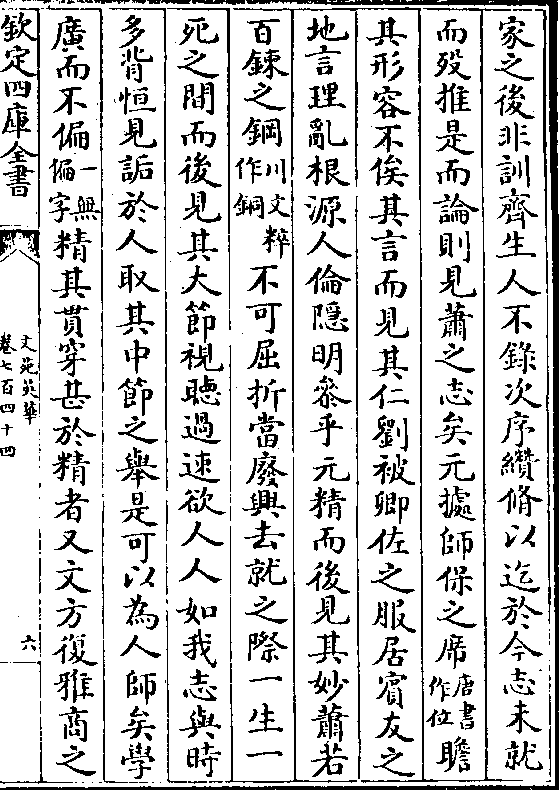 家之後非訓齊生人不錄次序纘脩以迄於今志未就
而歿推是而論則見蕭之志矣元據師保之席唐書作位瞻
其形容不俟其言而見其仁劉被卿佐之服居賓友之
地言理亂根源人倫隱明叅乎元精而後見其妙蕭若
百鍊之鋼川文粹作銅不可屈折當廢興去就之際一生一
死之間而後見其大節視聽過速欲人人如我志與時
多背恒見詬於人取其中節之舉是可以為人師矣學
廣而不偏一無偏字精其貫穿甚於精者又文方復雅商之
欽定四庫全書
文苑英華
卷七百四十四
六